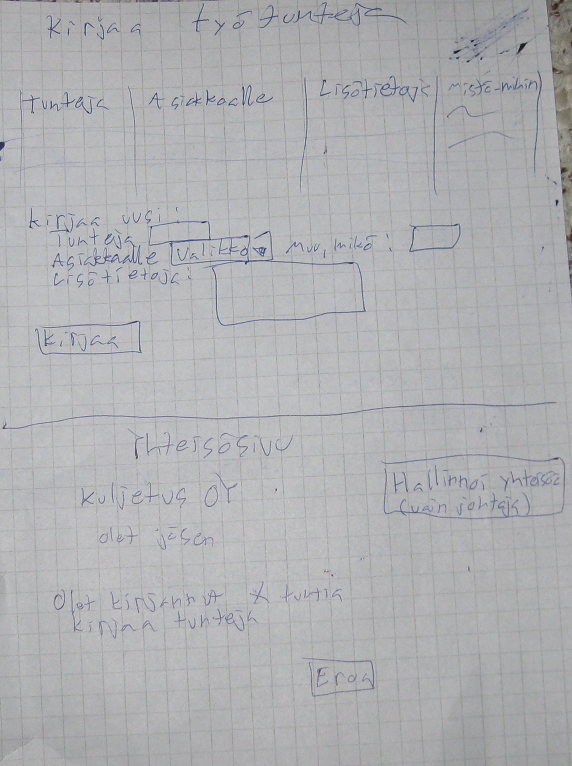 Kirjaa työtunteja
Tunteja Asiakkaalle Lisätietoja mistä-mihin
Kirjaa uusi:
Tunteja
Asiakkaalle Valikko Muu, mikä:
Lisätietoja:
Kirjaa
Yhteisösivu
Kuljetus OY
olet jäsen
Hallinnoi yhteisöä
(vain johtaja)
Olet kirjannut X tuntia
kirjaa tunteja
Eroa